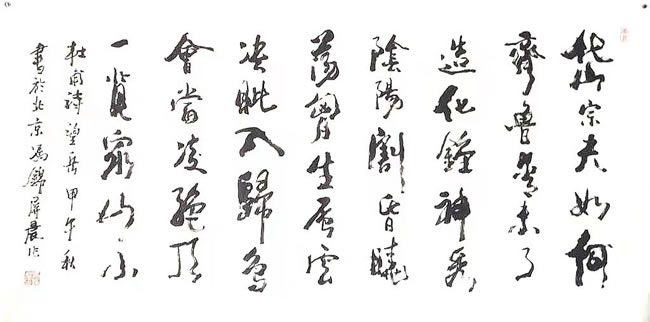 岱宗夫如何
齊魯青未了
造化鍾神秀
陰陽割昏曉
蕩胸生層雲
決眦入歸鳥
會當凌絕頂
一覽眾山小
杜甫詩望岳甲午秋
書於北京馮錦屏